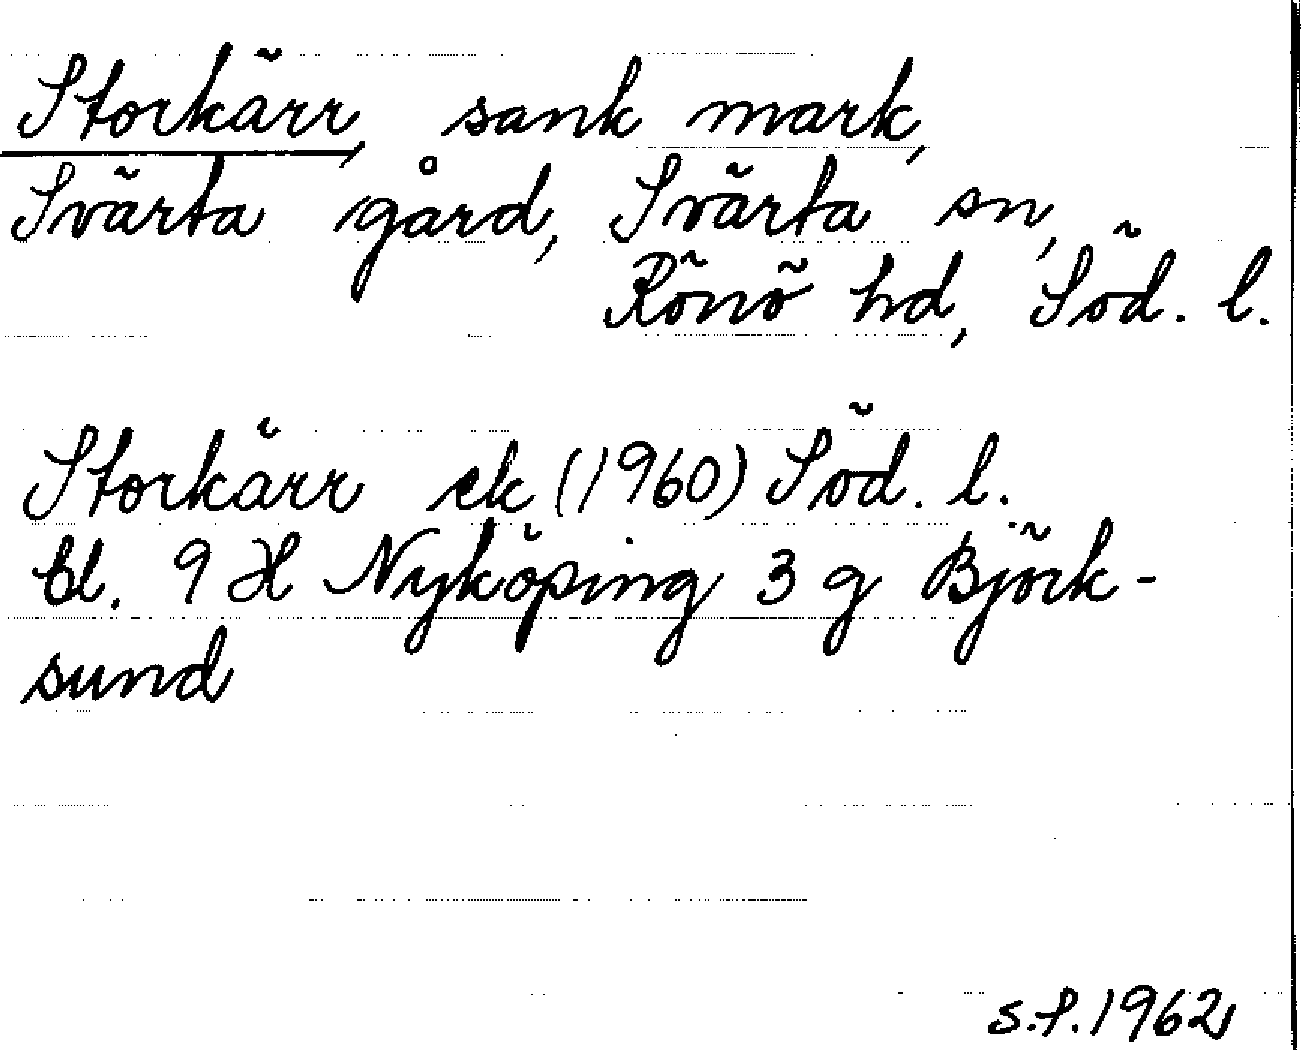 Storkärr, sank mark,
Svärta gård, Svärta sn,
Rönö hd, Söd. l.
Storkärr ek (1960) Söd. l.
bl. 9 H Nyköping 3 g Björk-
sund
s.f. 1962